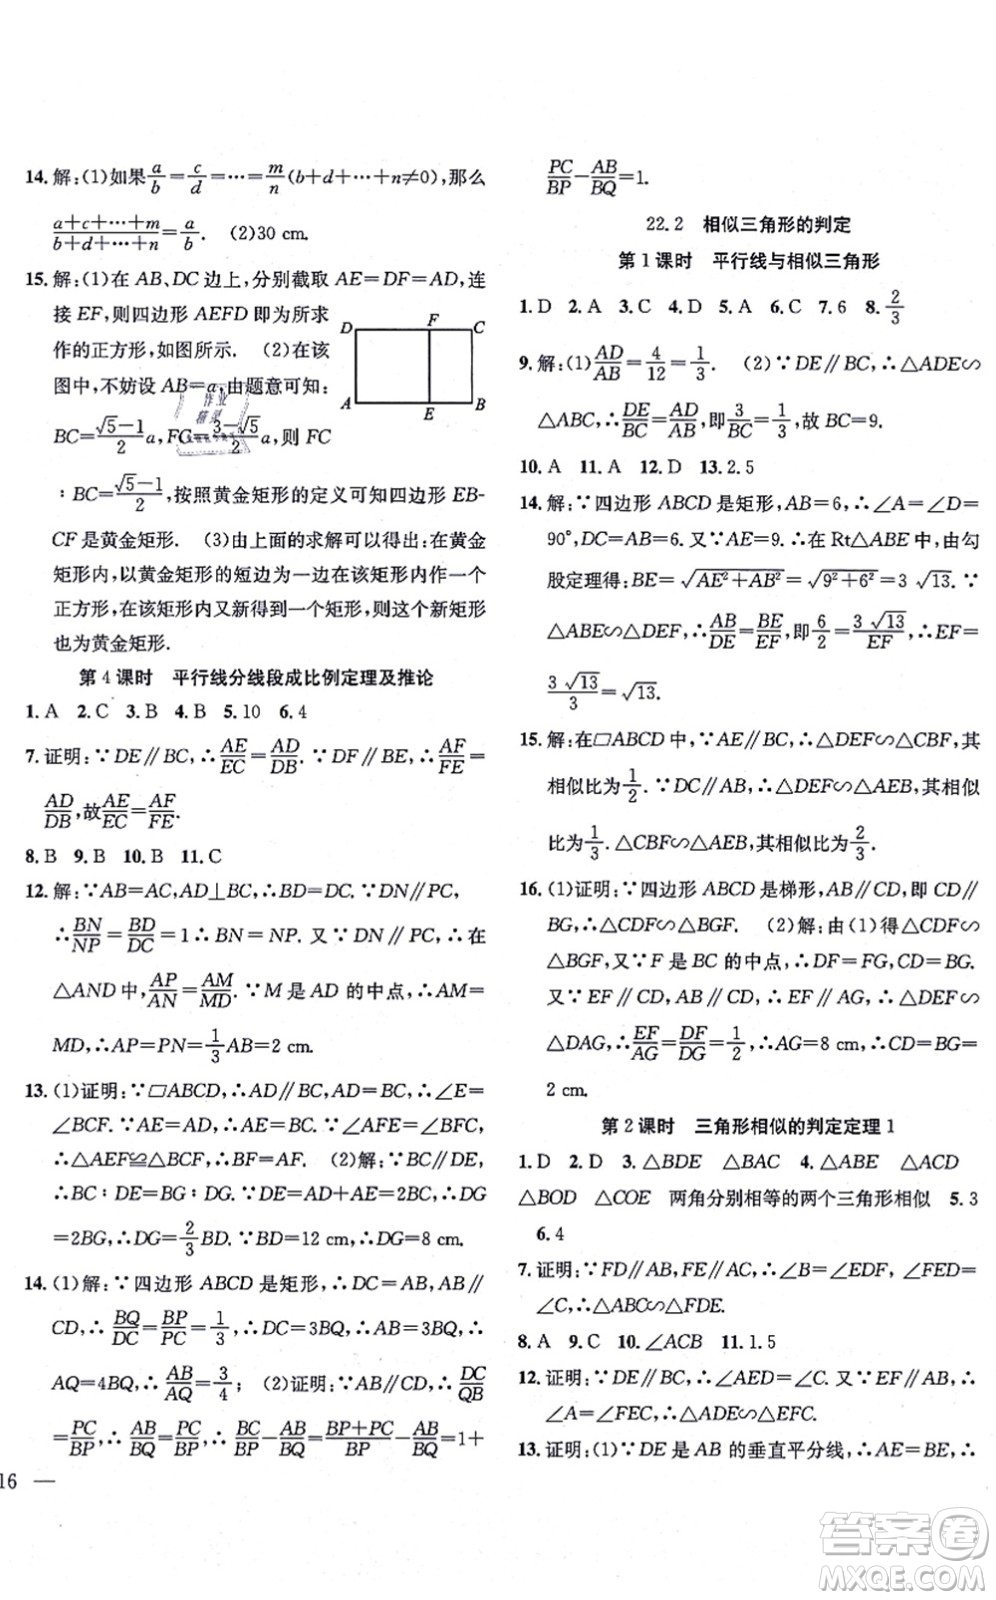 14.解:(1)如果a/b=c/d=…=m/n(b+d+…+n≠0),那么
(a+c+…+m)/(b+d+…+n)=a/b. (2)30 cm.
15.解:(1)在AB、DC边上,分别截取AE=DF=AD,连
接EF,则四边形AEFD即为所求
作的正方形,如图所示. (2)在该
图中,不妨设AB=a,由题意可知:
BC=(√5-1)/2 a,FC=(3-√5)/2 a,则FC
:BC=(√5-1)/2,按照黄金矩形的定义可知四边形EB-
CF是黄金矩形. (3)由上面的求解可以得出:在黄金
矩形内,以黄金矩形的短边为一边在该矩形内作一个
正方形,在该矩形内又新得到一个矩形,则这个新矩形
也为黄金矩形.
D F C
A E B
第4课时 平行线分线段成比例定理及推论
1.A 2.C 3.B 4.B 5.10 6.4
7.证明:∵DE∥BC,∴AE/EC=AD/DB. ∵DF∥BE,∴AF/FE=
AD/DB,故AE/EC=AF/FE.
8.B 9.B 10.B 11.C
12.解:∵AB=AC,AD⊥BC,∴BD=DC. ∵DN∥PC,
∴BN/NP=BD/DC=1∴BN=NP. 又∵DN∥PC,∴在
△AND中,AP/AN=AM/MD. ∵M是AD的中点,∴AM=
MD,∴AP=PN=1/3AB=2 cm.
13.(1)证明:∵▱ABCD,∴AD∥BC,AD=BC,∴∠E=
∠BCF. ∵AE=AD,∴AE=BC. ∵∠AFE=∠BFC,
∴△AEF≌△BCF,∴BF=AF. (2)解:∵AE∥BC,
∴BC:DE=BG:DG. ∵DE=AD+AE=2BC,∴DG
=2BG,∴DG=2/3BD. ∵BD=12 cm,∴DG=8 cm.
14.(1)解:∵四边形ABCD是矩形,∴DC=AB,AB∥
CD,∴BQ/DC=BP/PC=1/3,∴DC=3BQ,∴AB=3BQ,
AQ=4BQ,∴AB/AQ=3/4; (2)证明:∵AB∥CD,∴DC/QB
=PC/BP,∴AB/BQ=PC/BP,∴BC/BP-AB/BQ=(BP+PC)/BP-AB/BQ=1+
16 —
PC/BP-AB/BQ=1.
22.2 相似三角形的判定
第1课时 平行线与相似三角形
1.D 2.D 3.C 4.D 5.A 6.C 7.6 8.2/3
9.解:(1)AD/AB=4/12=1/3. (2)∵DE∥BC,∴△ADE∽
△ABC,∴DE/BC=AD/AB,即3/BC=1/3,故BC=9.
10.A 11.A 12.D 13.2.5
14.解:∵四边形ABCD是矩形,AB=6,∴∠A=∠D=
90°,DC=AB=6. 又∵AE=9. ∴在Rt△ABE中,由勾
股定理得:BE=√(AE²+AB²)=√(9²+6²)=3√13. ∵
△ABE∽△DEF,∴AB/DE=BE/EF,即6/2=3√13/EF,∴EF=
3√13/3=√13.
15.解:在▱ABCD中,∵AE∥BC,∴△DEF∽△CBF,其
相似比为1/2. ∵CD∥AB,∴△DEF∽△AEB,其相似
比为1/3. △CBF∽△AEB,其相似比为2/3.
16.(1)证明:∵四边形ABCD是梯形,AB∥CD,即CD∥
BG,∴△CDF∽△BGF. (2)解:由(1)得△CDF∽
△BGF,又∵F是BC的中点,∴DF=FG,CD=BG.
又∵EF∥CD,AB∥CD,∴EF∥AG,∴△DEF∽
△DAG,∴EF/AG=DF/DG=1/2,∴AG=8 cm,∴CD=BG=
2 cm.
第2课时 三角形相似的判定定理1
1.D 2.D 3.△BDE △BAC 4.△ABE △ACD
△BOD △COE 两角分别相等的两个三角形相似 5.3
6.4
7.证明:∵FD∥AB,FE∥AC,∴∠B=∠FDE,∠FED=
∠C,∴△ABC∽△FDE.
8.A 9.C 10.∠ACB 11.1.5
12.证明:∵DE∥BC,∴∠AED=∠C. 又∵EF∥AB,∴
∠A=∠FEC,∴△ADE∽△EFC.
13.证明:(1)∵DE是AB的垂直平分线,∴AE=BE,∴
作业
精灵
答案卷
MXQE.COM